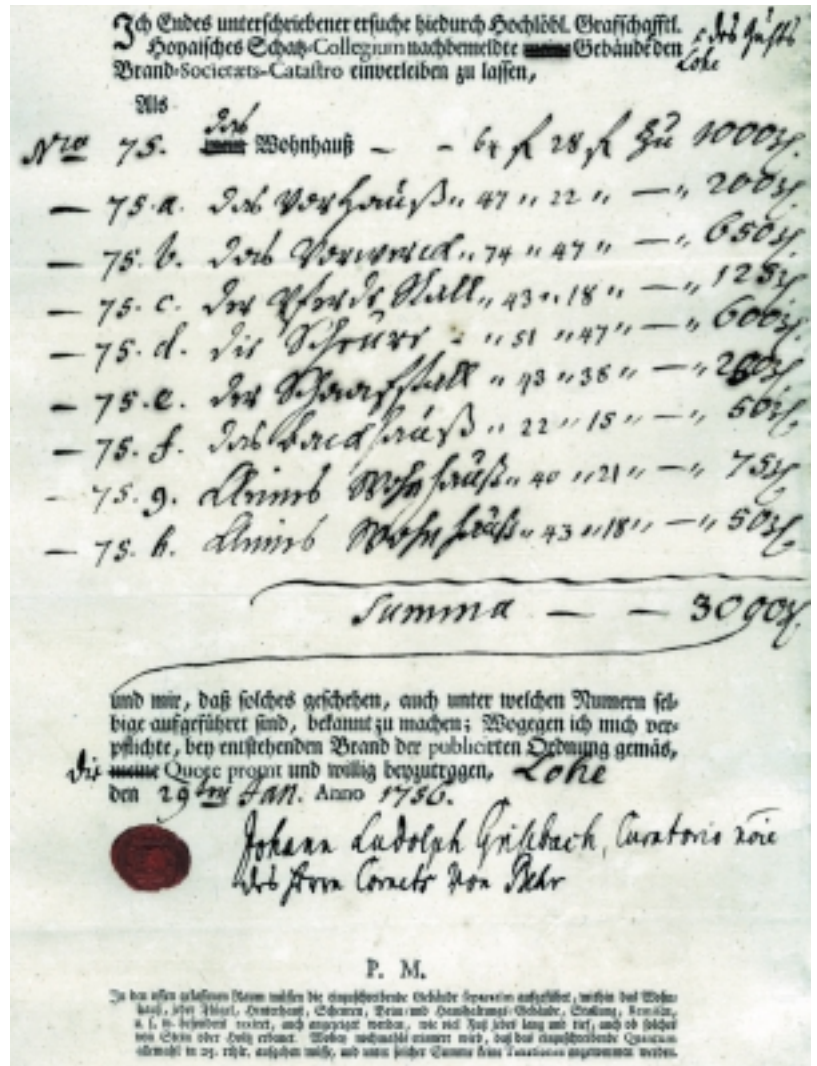 Ich Endes unterschriebener ersuche hiedurch Hochlöbl. Graffschafftl.
Hoyaisches Schatz-Collegium nachbemeldte meine Gebäude den des Guhts
Brand-Societæts-Catastro einverleiben zu lassen, Lohe
Als
das
Nro 75. mein Wohnhauß — - 64 f 28 f zu 1000
— 75. a. das Vorhauß „ 47 „ 22 „ — „ 200
— 75. b. das Vorwerck „ 74 „ 47 „ — „ 650
— 75. c. der Pferde Stall „ 43 „ 18 „ — „ 125
— 75. d. die Scheure - „ 51 „ 47 „ — „ 600
— 75. e. der Schaafstall „ 43 „ 38 „ —
— 75. f. das Backhauß „ 22 „ 15 „ — „ 50
— 75. g. kleines Wohnhauß „ 40 „ 21 „ — „ 75
— 75. h. kleines Wohnhauß „ 43 „ 18 „ — „ 50
Summa — — 3000
und mir, daß solches geschehen, auch unter welchen Numern sel-
bige aufgeführet sind, bekannt zu machen; Wogegen ich mich ver-
pflichte, bey entstehenden Brand der publicirten Ordnung gemäs,
die meine Quote promt und willig beyzutragen, Lohe
den 29ten Jan. Anno 1756.
Johann Ludolph Curatorio noie
des Herrn Cornets von Behr
P. M.
In den offen gelassenen Raum müssen die einzuschreibende Gebäude separatim aufgeführet, mithin das Wohn-
hauß, jeder Flügel, Hinterhauß, Scheuren, Brau- und Haushaltungs-Gebäude, Stallung, Remisen,
u. s. w. besonders taxiret, auch angezeiget werden, wie viel Fuß jedes lang und tief, auch ob solches
von Stein oder Holtz erbauet. Wobey nochmahls erinnert wird, daß das einzuschreibende Quantum
allemahl in 25. rthlr. aufgehen müsse, und unter solcher Summe keine Taxationes angenommen werden.